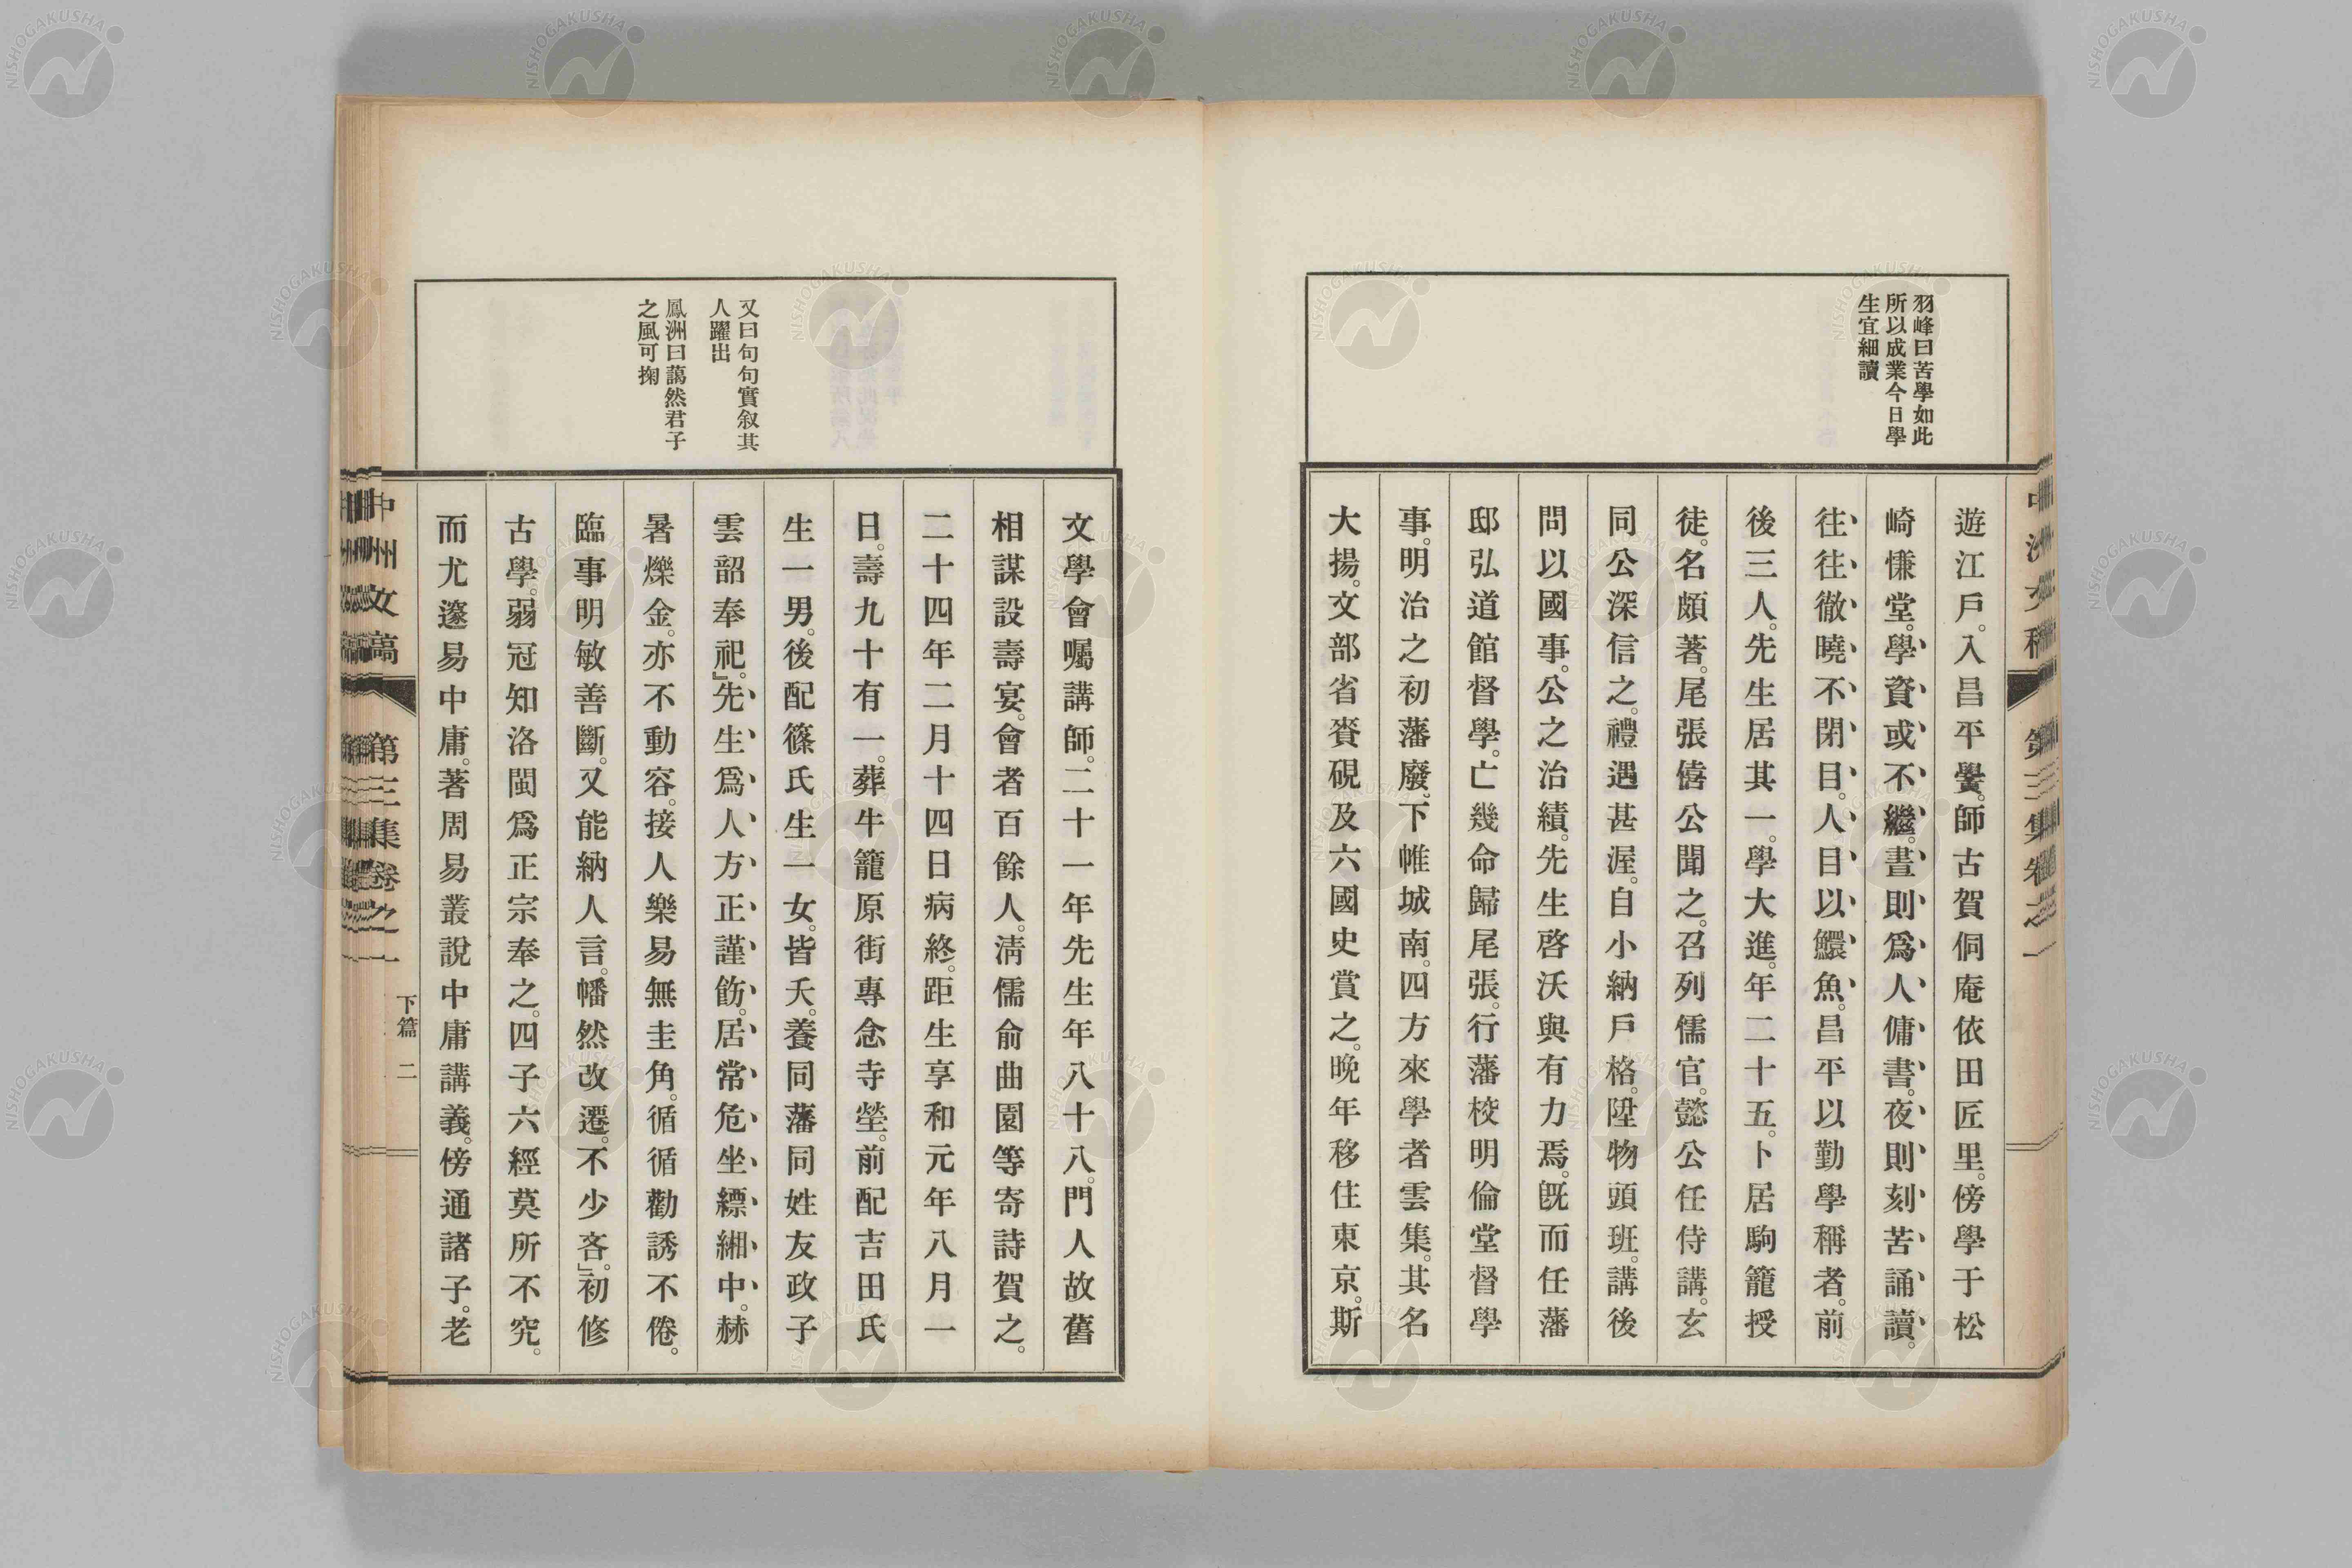 羽峰曰苦學如此
所以成業今日學
生宜細讀
遊江戶。入昌平黌。師古賀侗庵依田匠里。傍學于松
崎慊堂。學資或不繼。晝則爲人傭書。夜則刻苦誦讀。
往往徹曉不閉目。人目以鱞魚。昌平以勤學稱者。前
後三人。先生居其一。學大進。年二十五。卜居駒籠授
徒。名頗著。尾張僖公聞之。召列儒官。懿公任侍講。玄
同公深信之。禮遇甚渥。自小納戶格。陞物頭班。講後
問以國事。公之治績。先生啓沃與有力焉。既而任藩
邸弘道館督學。亡幾命歸尾張。行藩校明倫堂督學
事。明治之初藩廢。下帷城南。四方來學者雲集。其名
大揚。文部省賚硯及六國史賞之。晚年移住東京。斯
又曰句句實叙其
人躍出
鳳洲曰藹然君子
之風可掬
文學會囑講師。二十一年先生年八十八。門人故舊
相謀設壽宴。會者百餘人。淸儒俞曲園等寄詩賀之。
二十四年二月十四日病終。距生享和元年八月一
日。壽九十有一。葬牛籠原街專念寺塋。前配吉田氏
生一男。後配篠氏生一女。皆夭。養同藩同姓友政子
雲韶奉祀。』先生爲人方正謹飭。居常危坐縹緗中。赫
暑爍金。亦不動容。接人樂易無圭角。循循勸誘不倦。
臨事明敏善斷。又能納人言。幡然改遷。不少吝。』初修
古學。弱冠知洛閩爲正宗奉之。四子六經莫所不究。
而尤邃易中庸。著周易叢說中庸講義。傍通諸子。老
中州文稿
第三集卷之一
下篇 二